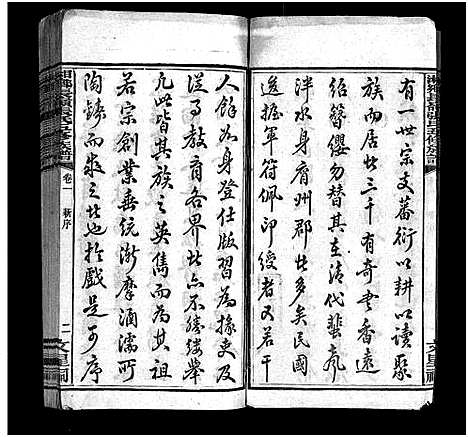 有一世宗支蕃衍以耕以读聚
族而居者三千有奇書香遠
紹簪纓勿替其在清代蜚聲
泮水身膺州郡者多矣民國
迄握軍符佩印綬者又若干
人餘如身登仕版習為掾吏及
從事教育各界者亦不勝縷舉
凡此皆其族之英雋而為其祖
若宗創業垂統漸摩涵濡所
陶鑄而來者也於戲是可序
卷一
新序
二